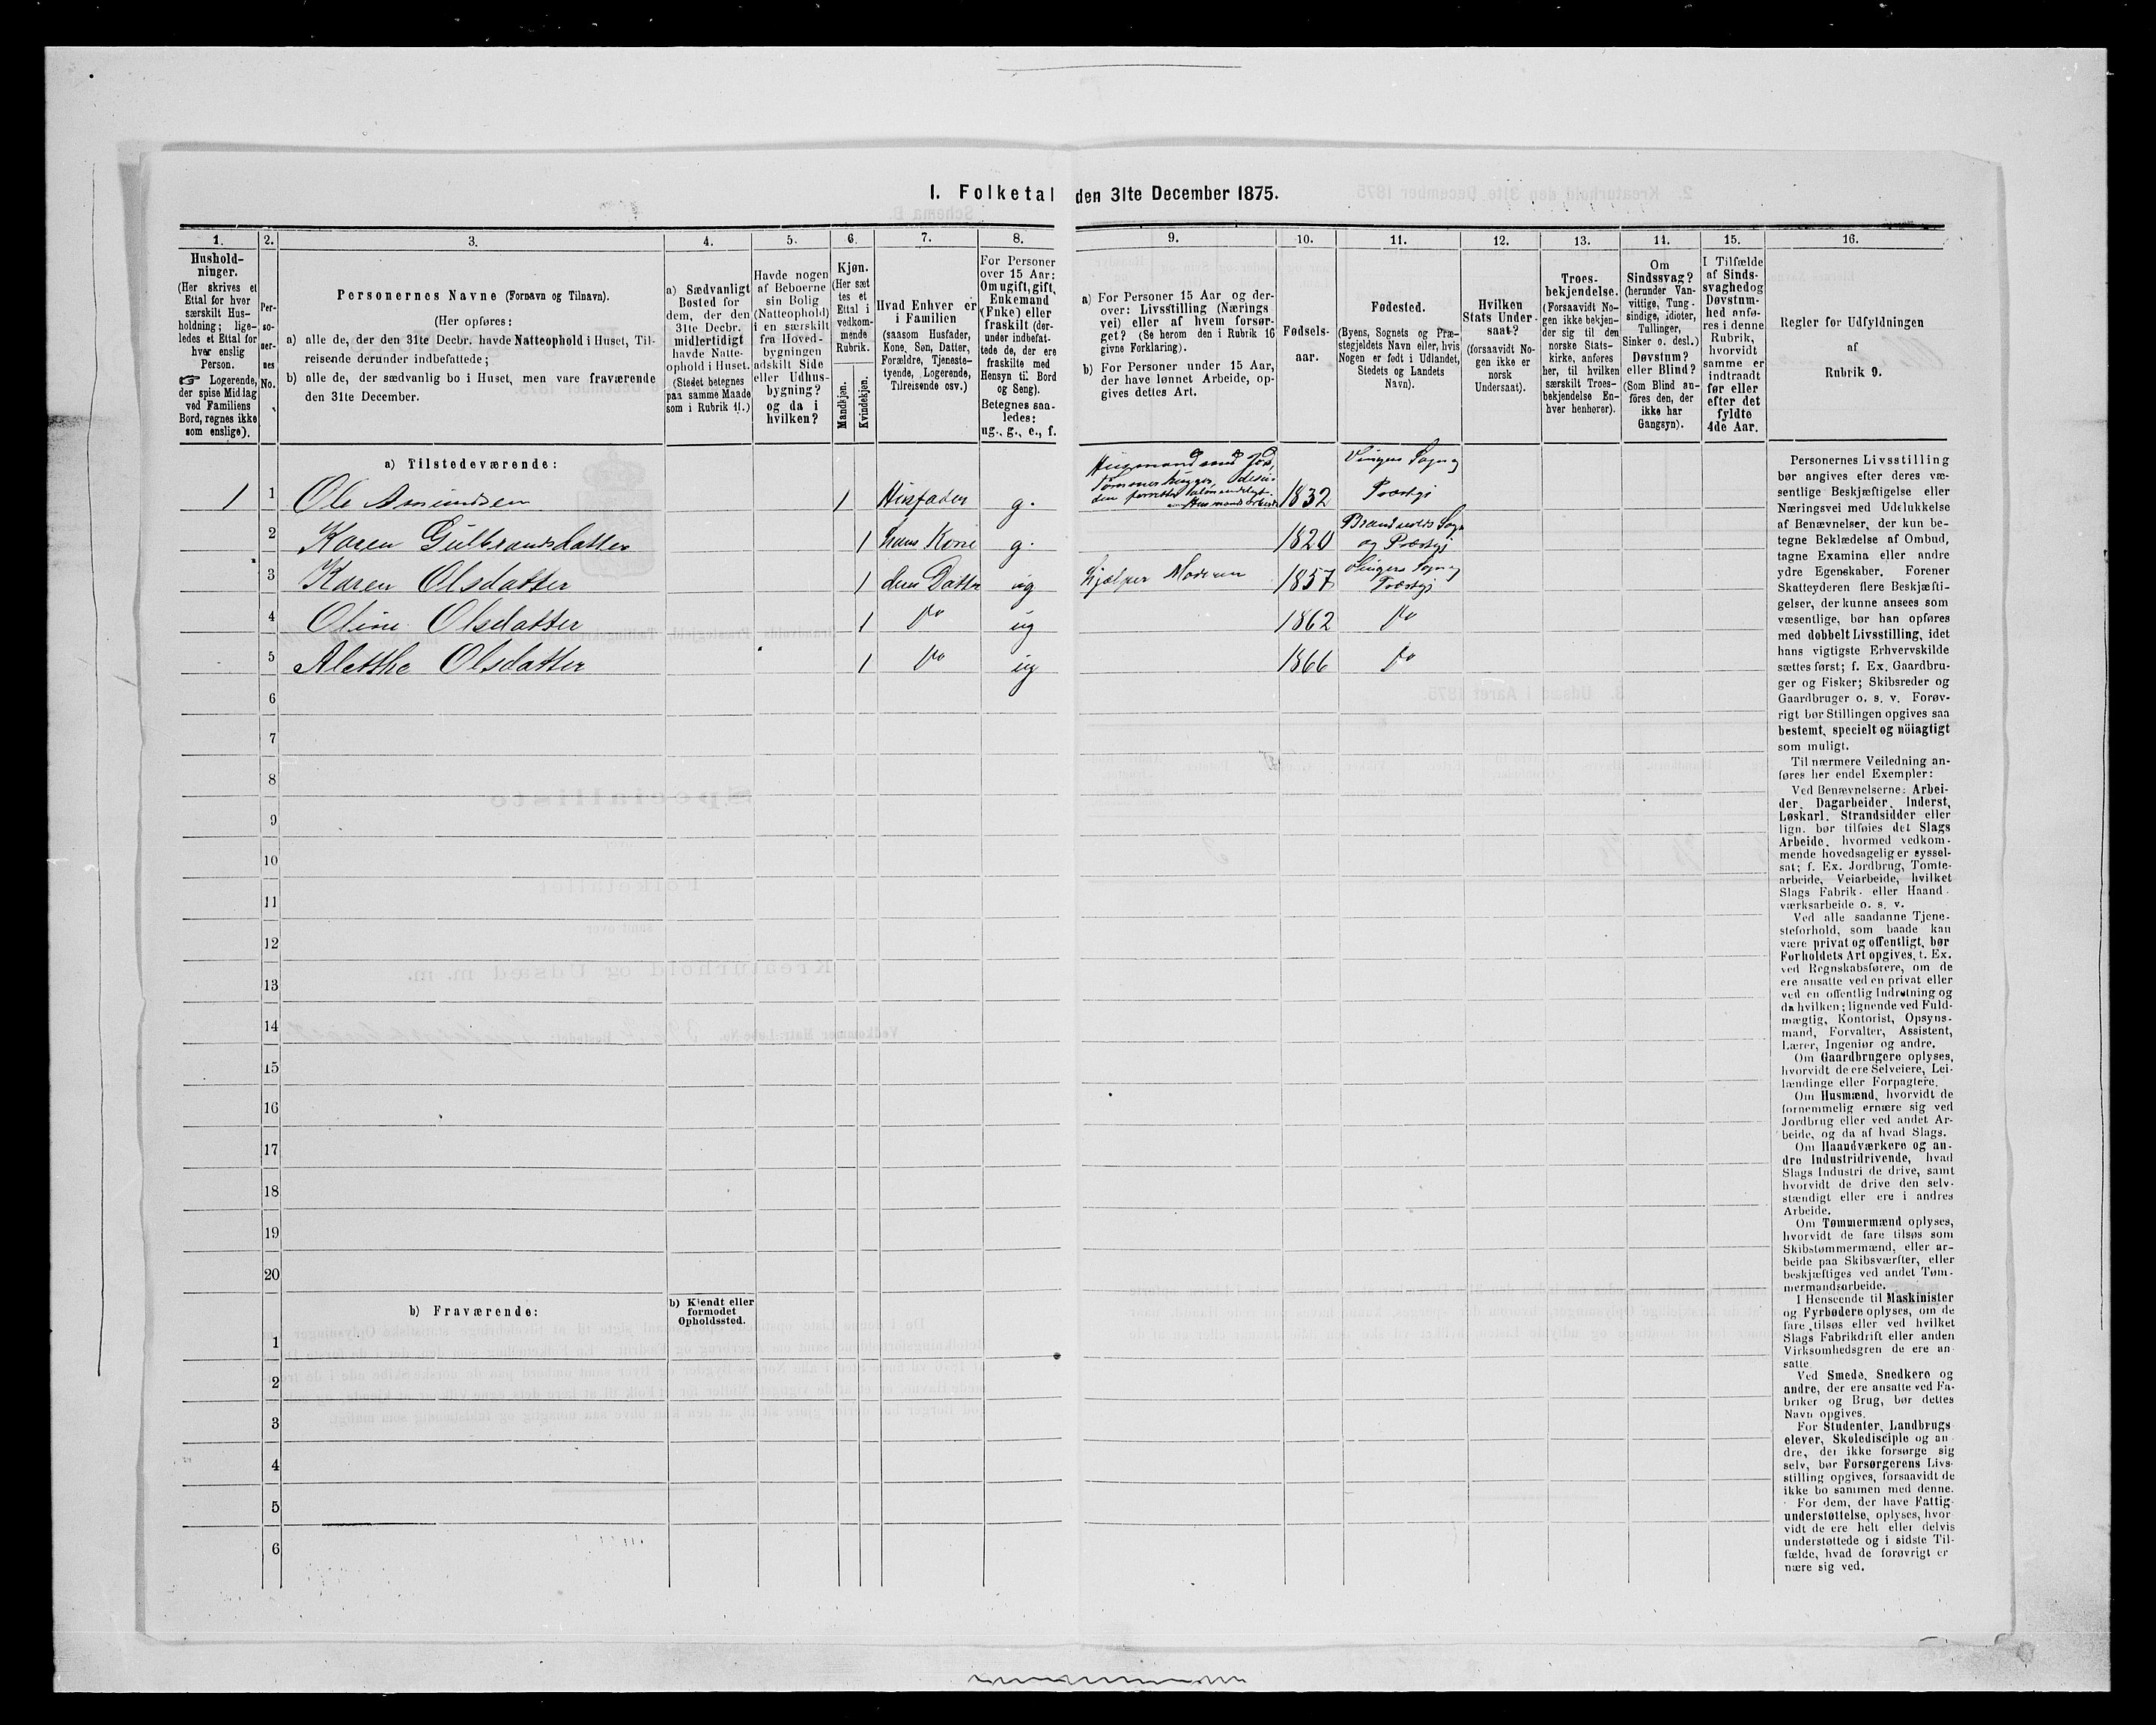 I. Folketal den 31te December 1875.
1.
2.
3.
4.
5.
6.
7.
8.
9.
10.
11.
12.
13.
14.
15.
16.
Hushold-
ninger.
(Her skrives et
Ettal for hver
særskilt Hus-
holdning; lige-
ledes et Ettal for
hver enslig
Person.
☞ Logerende,
der spise Middag
ved Familiens
Bord, regnes ikke
som enslige).
Per-
so-
ner-
nes
No.
Personernes Navne (Fornavn og Tilnavn).
(Her opføres:
a) alle de, der den 31te Decbr. havde Natteophold i Huset, Til-
reisende derunder indbefattede;
b) alle de, der sædvanlig bo i Huset, men vare fraværende
den 31te December.
a) Sædvanligt
Bosted for
dem, der den
31te Decbr.
midlertidigt
havde Natte-
ophold i Huset.
(Stedet betegnes
paa samme Maade
som i Rubrik 11.)
Havde nogen
af Beboerne
sin Bolig
(Natteophold)
i en særskilt
fra Hoved-
bygningen
adskilt Side
eller Udhus-
bygning?
og da i
hvilken?
Kjøn.
(Her sæt
tes et
Ettal i
vedkom-
mende
Rubrik.
Mandkjøn.
Kvindekjøn.
Hvad Enhver er
i Familien
(saasom Husfader,
Kone, Søn, Datter,
Forældre, Tjeneste-
tyende, Logerende,
Tilreisende osv.)
For Personer
over 15 Aar:
Om ugift, gift,
Enkemand
(Enke) eller
fraskilt (der-
under indbefat-
tede de, der ere
fraskilte med
Hensyn til Bord
og Seng).
Betegnes saa-
ledes:
ug., g., e., f.
a) For Personer 15 Aar og der-
over: Livsstilling (Nærings
vei) eller af hvem forsør-
get? (Se herom den i Rubrik 16
givne Forklaring).
b) For Personer under 15 Aar,
der have lønnet Arbeide, op-
gives dettes Art.
Fødsels-
aar.
Fødested.
(Byens, Sognets og Præ-
stegjeldets Navn eller, hvis
Nogen er født i Udlandet,
Stedets og Landets
Navn).
Hvilken
Stats Under-
saat?
(forsaavidt No-
gen ikke er
norsk
Undersaat).
Troes-
bekjendelse.
(Forsaavidt No-
gen ikke bekjen-
der sig til den
norske Stats-
kirke, anføres
her, til hvilken
særskilt Troes-
bekjendelse En-
hver henhører).
Om
Sindssvag?
(herunder Van-
vittige, Tung-
sindige, Idioter,
Tullinger,
Sinker o. desl.)
Døvstum?
eller Blind?
(Som Blind an-
föres den, der
ikke har
Gangsyn).
I Tilfælde
af Sinds-
svaghed og
Døvstum-
hed anfø-
res i denne
Rubrik,
hvorvidt
samme er
indtraadt
før eller
efter det
fyldte
4de Aar.
Regler for Udfyldningen
af
Rubrik 9.
a) Tilstedeværende:
1 1 Ole Amundsen 1 Husfader g. Husmand med Jord, 1832 Vinger Sogn og Præstgj
2 Karen Gulbrandsdatter 1 hans Kone g. 1820 Brandvolds Sogn og Præstgj
3 Karen Olsdatter 1 deres Datter ug hjælper Moderen 1857 Vinger Sogn og Præstgj
4 Oline Olsdatter 1 do ug 1862 do
5 Alethe Olsdatter 1 do ug 1866 do
6
7
8
9
10
11
12
13
14
15
16
17
18
19
20
b) Fraværende:
b) Kjendt eller
formodet
Opholdssted.
1
2
3
4
5
6
Personernes Livsstilling
bør angives efter deres væ-
sentlige Beskjæftigelse eller
Næringsvei med Udelukkelse
af Benævnelser, der kun be-
tegne Beklædelse af Ombud,
tagne Examina eller andre
ydre Egenskaber. Forener
Skatteyderen flere Beskjæfti-
gelser, der kunne ansees som
væsentlige, bør han opføres
med dobbelt Livsstilling, idet
hans vigtigste Erhvervskilde
sættes først; f. Ex. Gaardbru-
ger og Fisker; Skibsreder og
Gaardbruger o. s. v. Forøv-
rigt bør Stillingen opgives saa
bestemt, specielt og nöiagtigt
som muligt.
Til nærmere Veiledning an-
føres her endel Exempler:
Ved Benævnelserne: Arbei-
der, Dagarbeider, Inderst,
Løskarl, Strandsidder eller
lign. bør tilføies det Slags
Arbeide, hvormed vedkom-
mende hovedsagelig er syssel-
sat; f. Ex. Jordbrug, Tomte-
arbeide, Veiarbeide, hvilket
Slags Fabrik- eller Haand-
værksarbeide o. s. v.
Ved alle saadanne Tjene-
steforhold, som baade kan
være privat og offentligt, bør
Forholdets Art opgives, f. Ex.
ved Regnskabsførere, om de
ere ansatte ved en privat eller
ved en offentlig Indretning og
da hvilken; lignende ved Fuld-
mægtig, Kontorist, Opsyns-
mand, Forvalter, Assistent,
Lærer, Ingeniør og andre.
Om Gaardbrugere oplyses,
hvorvidt de ere Selveiere, Lei-
lændinge eller Forpagtere.
Om Husmænd, hvorvidt de
fornemmelig ernære sig ved
Jordbrug eller ved andet Ar-
beide, og da af hvad Slags.
Om Haandværkere og an-
dre Industridrivende, hvad
Slags Industri de drive, samt
hvorvidt de drive den selv-
stændigt eller ere i andres
Arbeide.
Om Tømmermænd oplyses,
hvorvidt de fare tilsøs som
Skibstømmermænd, eller ar-
beide paa Skibsværfter, eller
beskjæftiges ved andet Tøm-
mermandsarbeide.
I Henseende til Maskinister
og Fyrbødere oplyses, om de
fare tilsøs eller ved hvilket
Slags Fabrikdrift eller anden
Virksomhedsgren de ere an-
satte.
Ved Smede, Snedkere og
andre, der ere ansatte ved Fa-
briker og Brug, bør dettes
Navn opgives.
For Studenter, Landbrugs
elever, Skoledisciple og an-
dre, der ikke forsørge sig
selv, bør Forsørgerens Livs-
stilling opgives, forsaavidt de
ikke bo sammen med denne.
For dem, der have Fattig-
understøttelse, oplyses, hvor-
vidt de ere helt eller delvis
understøttede og i sidste Til-
fælde, hvad de forøvrigt er-
nære sig ved.